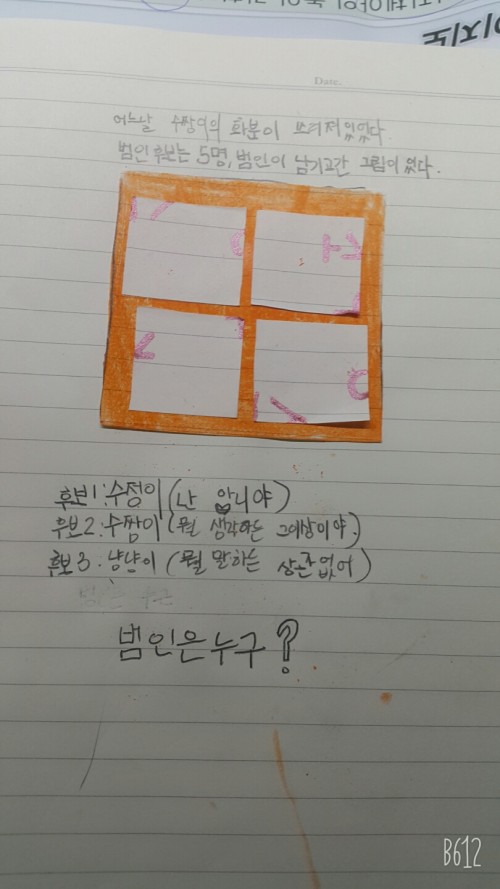 Date.
어느날 수짱이의 화분이 쓰러져있었다.
범인 후보는 5명, 범인이 남기고간 그림이 있다.
후보1: 수정이 (난 아니야)
후보2: 수짬이 (뭘 생각하는 그이상이야.)
후보3: 냥냥이 (뭘 말하는 상관없어)
범인은누구?
B612